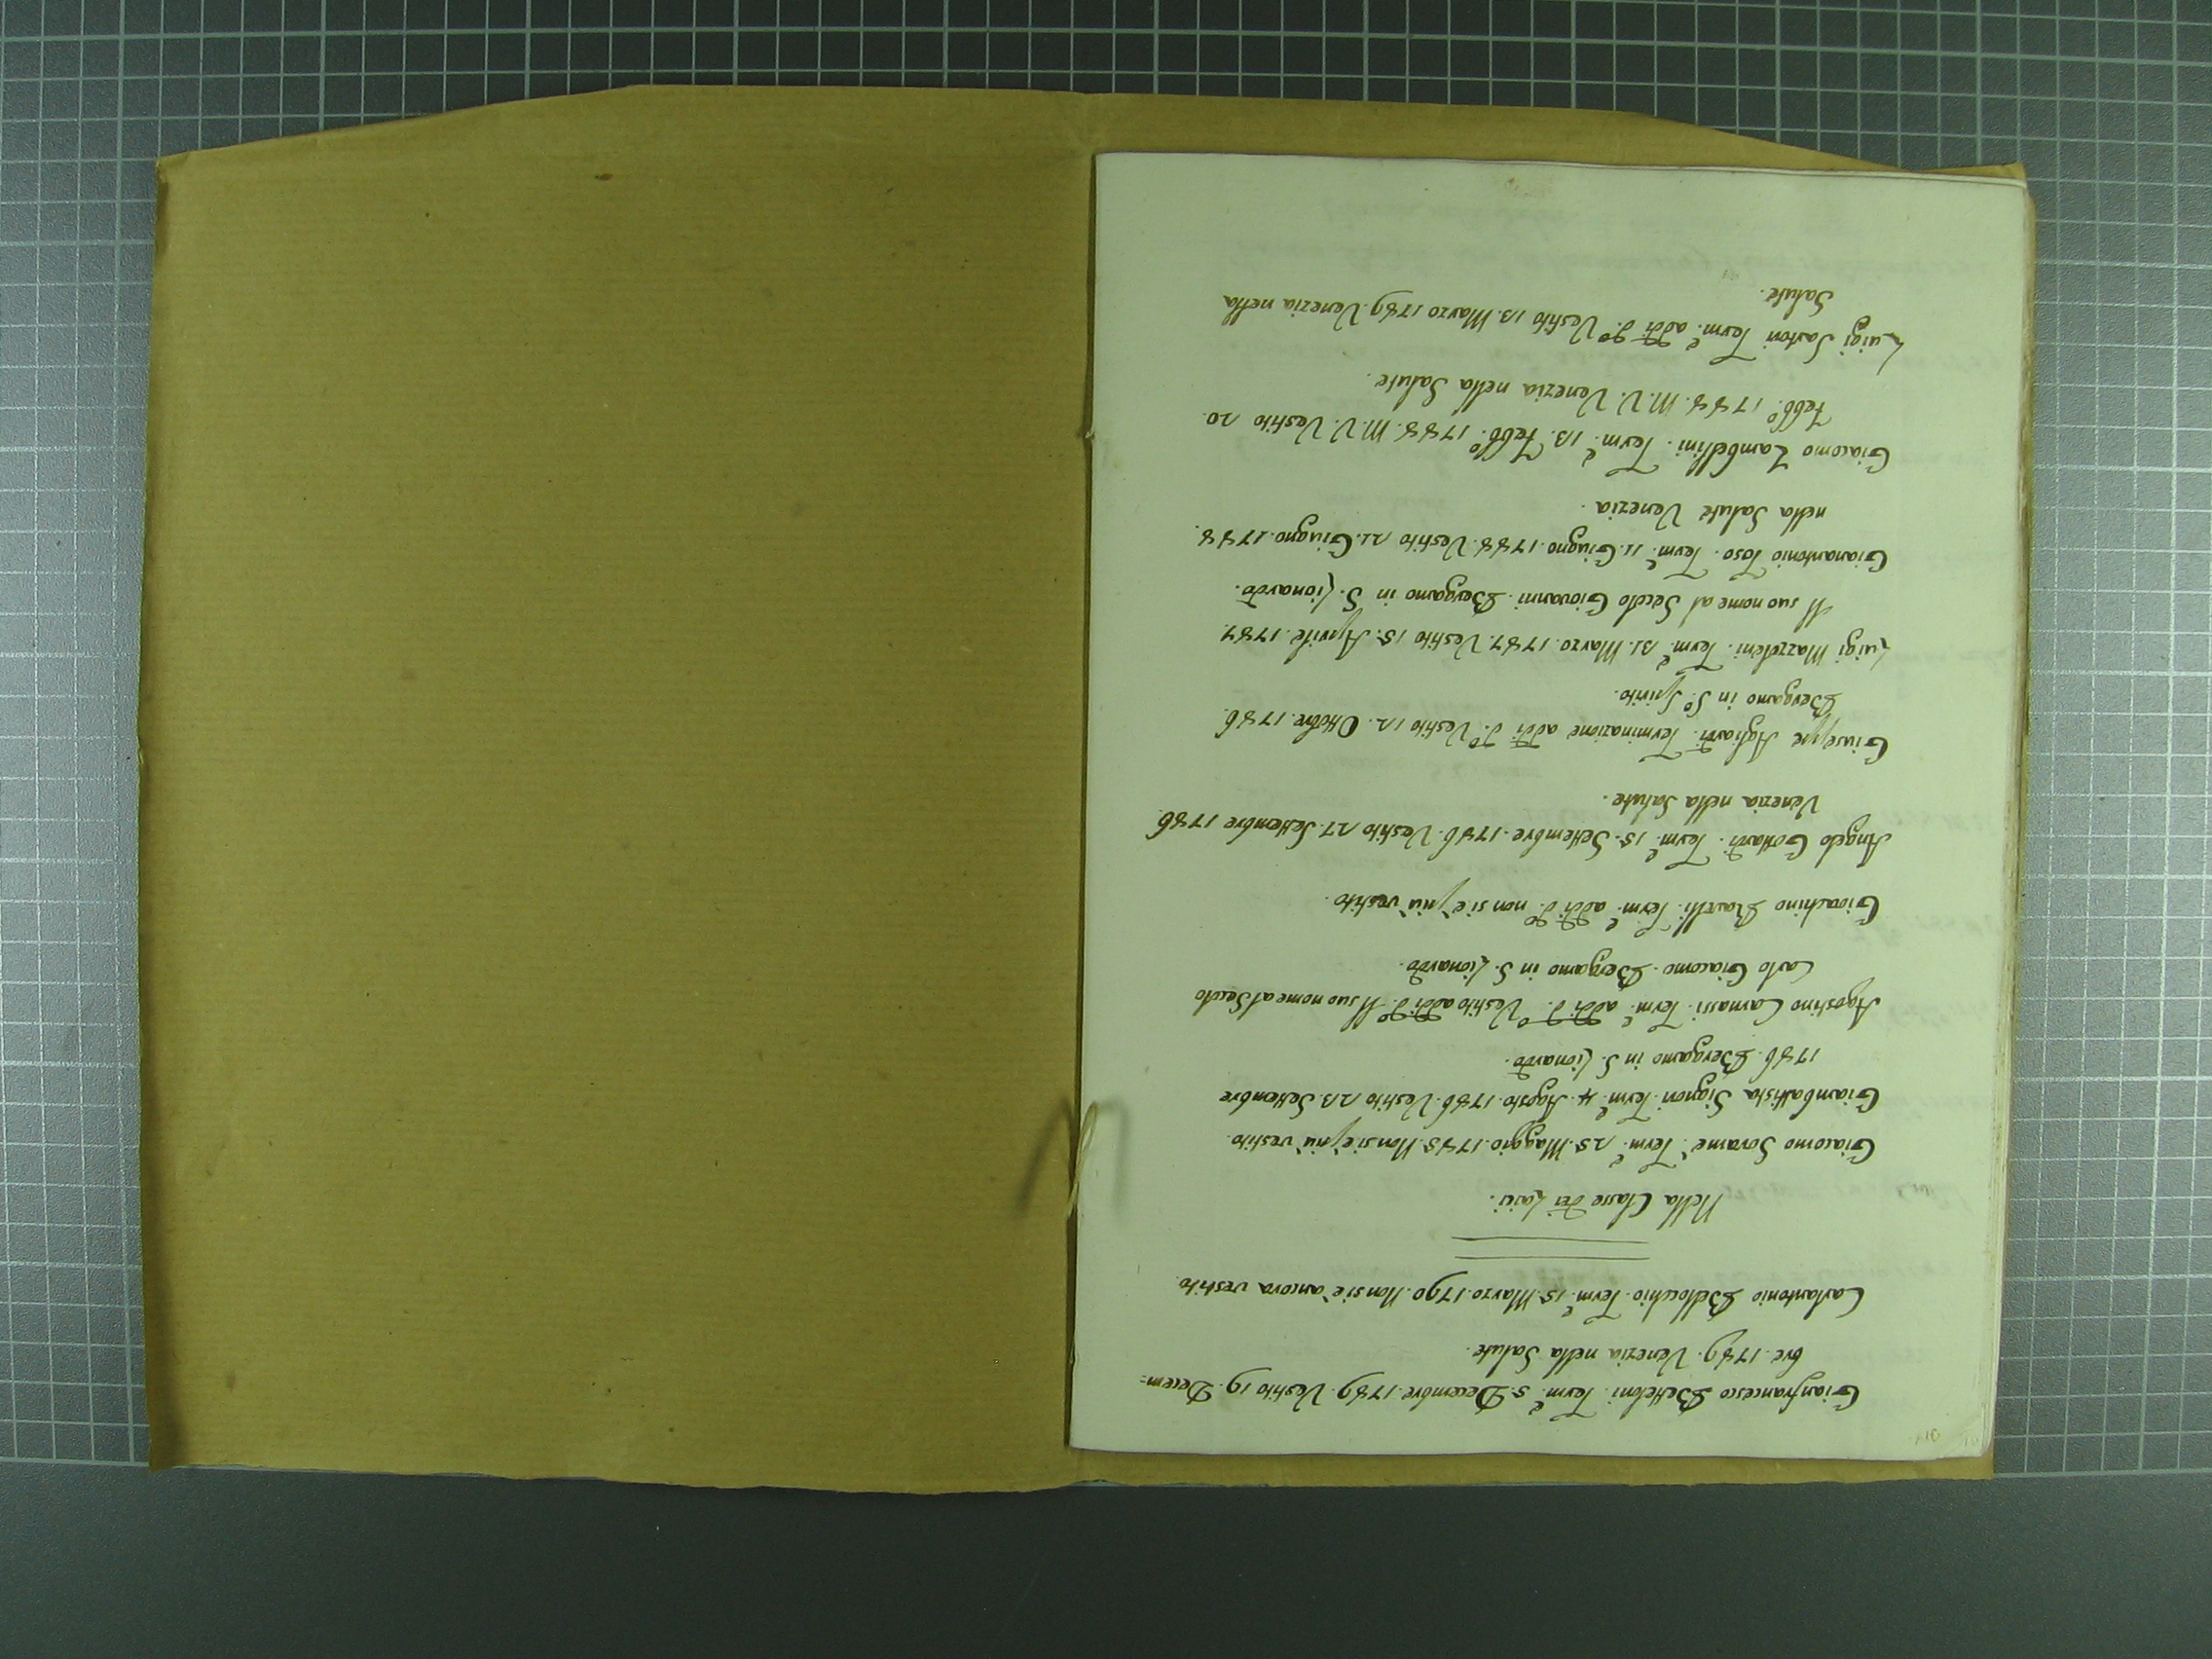 Gianfrancesco Betteloni. Term.e 5. Decembre. 1789. Vestito 19. Decem=
bre. 1789. Venezia nella Salute.
Carlantonio Bellocchio. Term.e 15. Marzo. 1790. Non si è ancora vestito.
Nella Classe dei Laici.
Giacomo Term.e 25. Maggio. 1785. Non si è più vestito.
Giambattista Signori. Term.e 4. Agosto. 1786. Vestito 23. Settembre
1786. Bergamo in S. Lionardo.
Agostino Carnassi. Term.e addi d.o Vestito addi d.o Il suo nome al Secolo
Carlo Giacomo. Bergamo in S. Lionardo.
Gioachino Term.e addi d.o non si è più vestito.
Angelo Gottardi. Term.e 15. Settembre. 1786. Vestito 27. Settembre 1786.
Venezia nella Salute.
Giuseppe Agliardi. Terminazione addi d.o Vestito 12. Ottobre. 1786.
Bergamo in S.o Spirito.
Luigi Mazzoleni. Term.e 31. Marzo. 1787. Vestito 15. Aprile. 1787.
Il suo nome al Secolo Giovanni. Bergamo in S. Lionardo.
Gianantonio Toso. Term.e 11. Giugno. 1788. Vestito 21. Giugno. 1788.
nella Salute Venezia.
Giacomo Zambellini. Term.e 13. Febb.o 1788. M.V. Vestito 20.
Febb.o 1788. M.V. Venezia nella Salute.
Luigi Sartori Term.e addi d.o Vestito 13. Marzo 1789. Venezia nella
Salute.